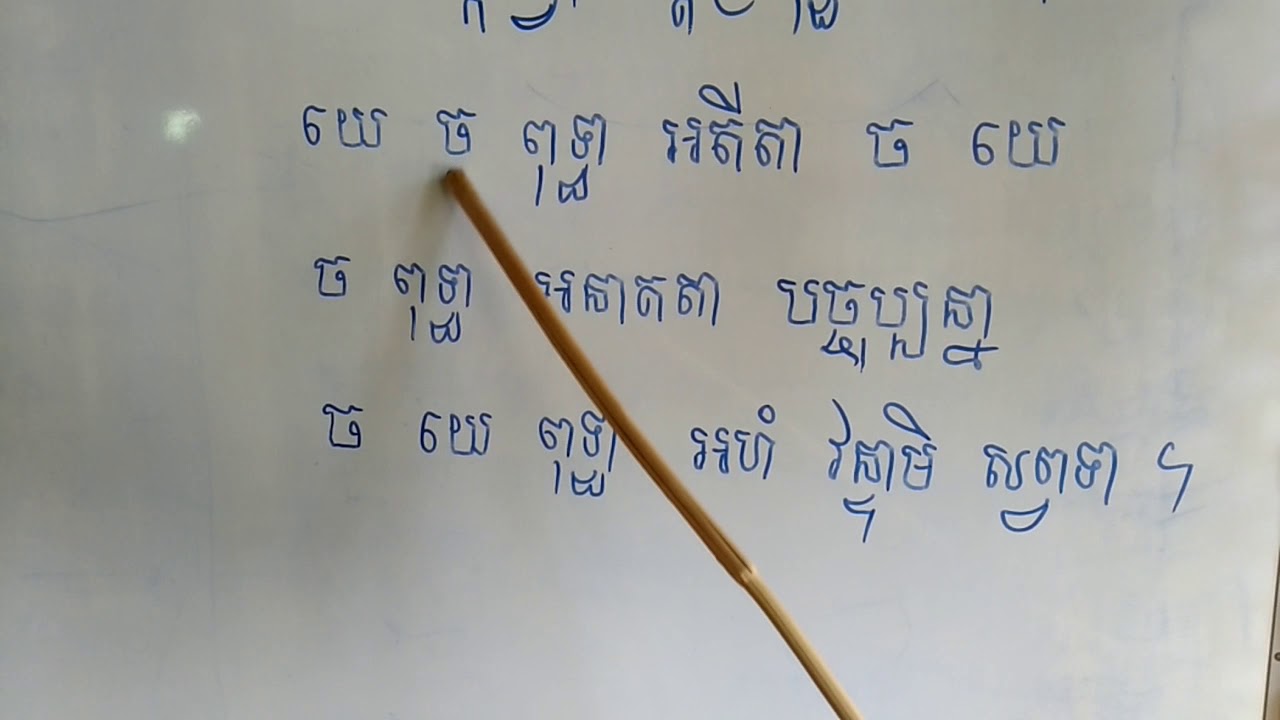 យេ ច ពុទ្ធា អតីតា ច យេ
ច ពុទ្ធា អនាគតា បច្ចុប្បន្នា
ច យេ ពុទ្ធា អហំ វន្ទាមិ សព្វទា ។